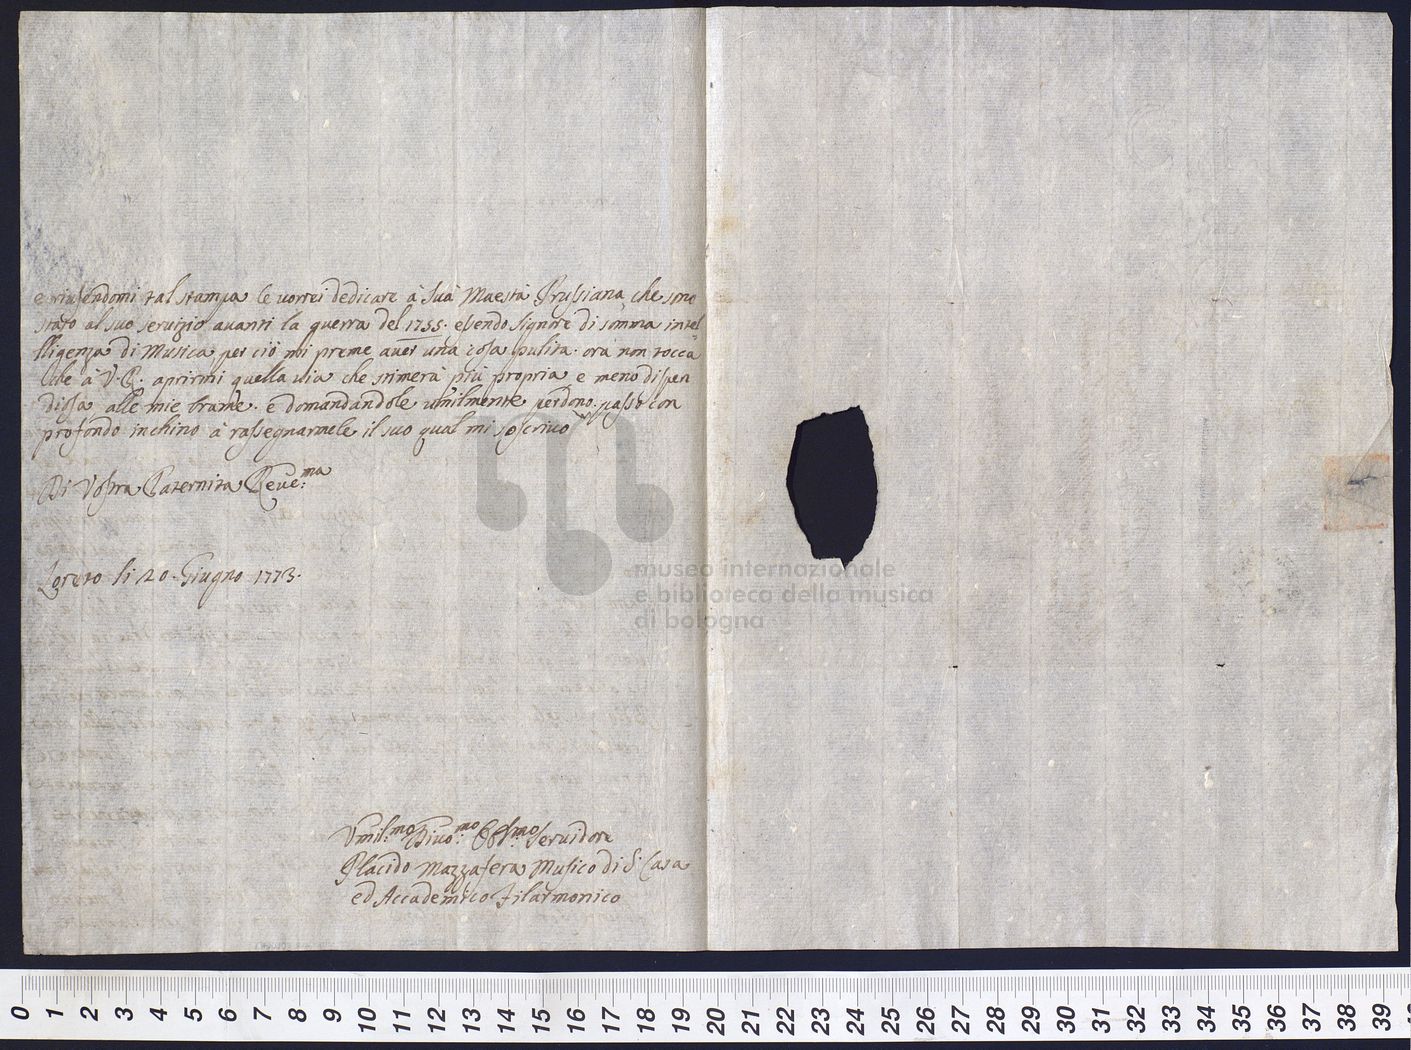 e riusendomi tal stampa le vorrei dedicare à Suà Maestà Prussiana, che sono
stato al suo servizio avanti la guerra del 1755. esendo Signore di somma intel
lligenza di Musica per ciò mi preme aver una cosa pulita. ora non tocca
che à V. P. aprirmi quella via che stimerà più propria e meno dispen
diosa alle mie brame. e domandandole umilmente perdono. passo con
profondo inchino à rassegnarmele il suo qual mi soscrivo
Di Vostra Paternita Reve:ma
Loreto li 20. Giugno 1773.
Umil:mo Divo:mo Obb:mo Servidore
Placido Mazzafera Musico di S. Casa
ed Accademico Filarmonico
museo internazionale
e biblioteca della musica
di bologna
0 1 2 3 4 5 6 7 8 9 10 11 12 13 14 15 16 17 18 19 20 21 22 23 24 25 26 27 28 29 30 31 32 33 34 35 36 37 38 39